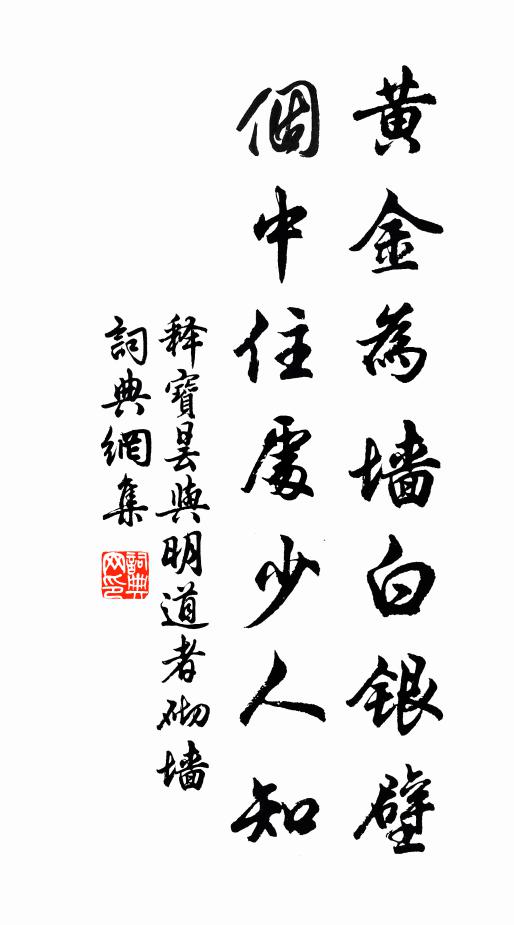 黄金為墙白銀壁
個中住處少人知
释寶昙與明道者砌墙
詞典網集
詞典網印